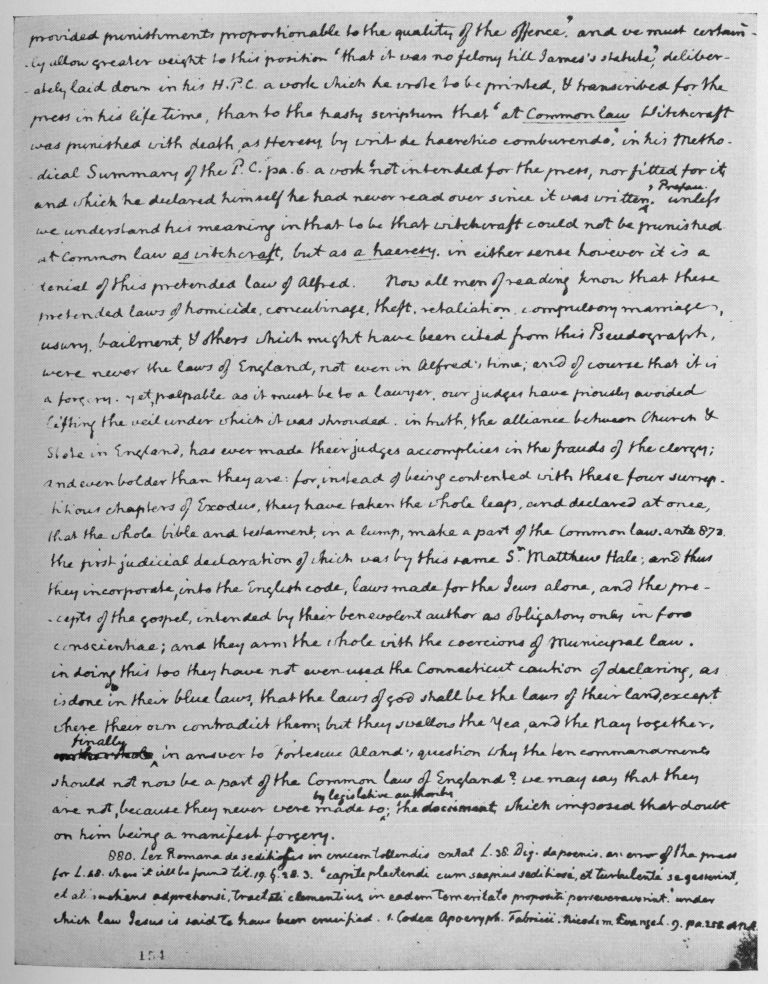 provided punishments proportionable to the quality of the offence." and we must certain-
-ly allow greater weight to this position 'that it was no felony till James's statute,' deliber-
-ately laid down in his H.P.C. a work which he wrote to be printed, & transcribed for the
press in his life time, than to the hasty scriptum that 'at Common law Witchcraft
was punished with death, as Heresy by writ de haeretico comburendo,' in his Metho-
-dical Summary of the P.C. pa. 6. a work 'not intended for the press, nor fitted for it,
and which he declared himself he had never read over since it was written.' Prefac. unless
we understand his meaning in that to be that witchcraft could not be punished
at Common law as witchcraft, but as a haeresy. in either sense however it is a
denial of this pretended law of Alfred. Now all men of reading know that these
pretended laws of homicide, concubinage, theft, retaliation, compulsory marriage,
usury, bailment, & others which might have been cited from this Pseudograph,
were never the laws of England, not even in Alfred's time; and of course that it is
a forgery. yet, palpable as it must be to a lawyer, our judges have piously avoided
lifting the veil under which it was shrouded. in truth, the alliance between Church &
State in England, has ever made their judges accomplices in the frauds of the clergy;
and even bolder than they are: for, instead of being contented with these four surrep-
titious chapters of Exodus, they have taken the whole leap, and declared at once,
that the whole bible and testament, in a lump, make a part of the Common law. ante 873.
the first judicial declaration of which was by this same Sr. Matthew Hale: and thus
they incorporate, into the English code, laws made for the Jews alone, and the pre-
-cepts of the gospel, intended by their benevolent author as obligatory only in foro
conscientiae; and they arm the whole with the coercions of Municipal law.
in doing this too they have not even used the Connecticut caution of declaring, as
is done in their blue laws, that the laws of god shall be the laws of their land, except
where their own contradict them; but they swallow the Yea, and the Nay together.
finally in answer to Fortescue Aland's question why the ten commandments
should not now be a part of the Common law of England? we may say that they
are not, because they never were made so by legislative authority; the document, which imposed that doubt
on him being a manifest forgery.
880. Lex Romana de seditiosis in crucem tollendis extat L. 38. Dig. de poenis. an error of the press
for L. 28. where it will be found tit. 19. §. 28. 3. 'capite plectendi cum saepius seditiose, et turbulente se gesserint,
et aliquotiens adprehensi, tractati clementius, in eadem temeritate propositi perseveraverint.' under
which law Jesus is said to have been crucified. 1. Codex Apocryph. Fabricii. Nicodem. Evangel. 9. pa. 258.
154